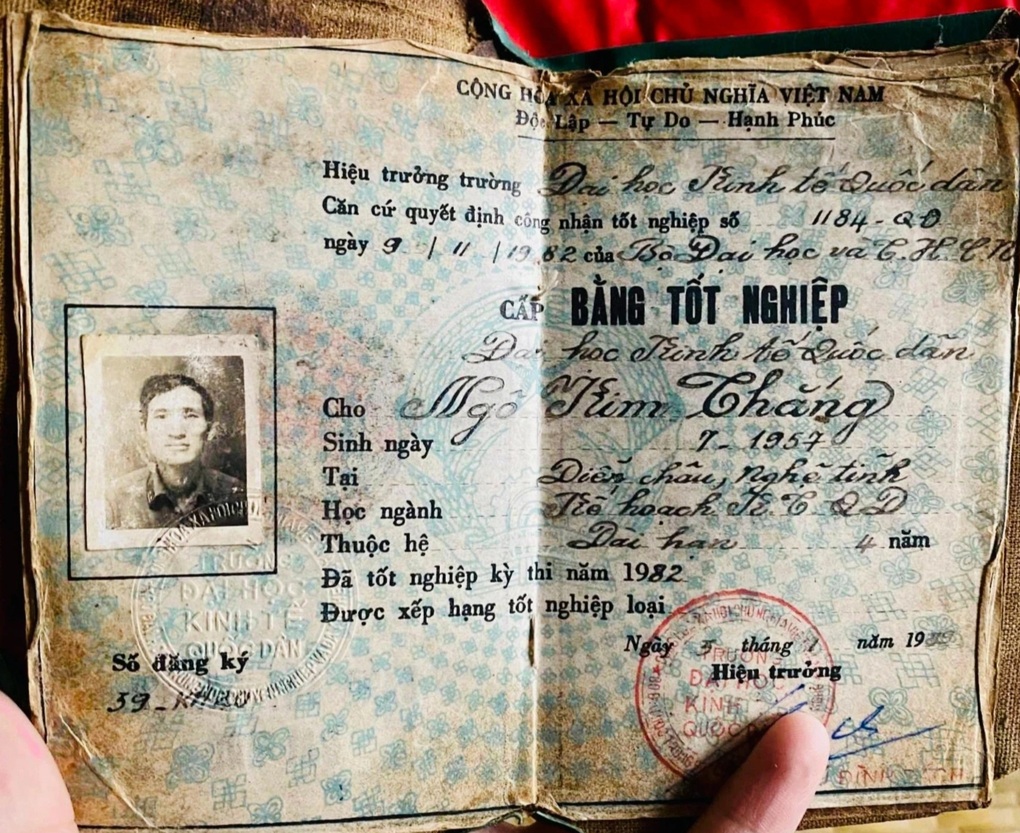 CỘNG HÒA XÃ HỘI CHỦ NGHĨA VIỆT NAM
Độc Lập — Tự Do — Hạnh Phúc
Hiệu trưởng trường Đại học Kinh tế Quốc dân
Căn cứ quyết định công nhận tốt nghiệp số 1184-QĐ
ngày 9 / 11 / 1982 của Bộ Đại học và T.H.C.N
CẤP BẰNG TỐT NGHIỆP
Đại học Kinh tế Quốc dân
Cho Ngô Kim Thắng
Sinh ngày 7-1957
Tại Diễn châu, Nghệ tĩnh
Học ngành Kế hoạch K.T.Q.D
Thuộc hệ Dài hạn 4 năm
Đã tốt nghiệp kỳ thi năm 1982
Được xếp hạng tốt nghiệp loại
Ngày 5 tháng 1 năm 19
Hiệu trưởng
TRƯỜNG
ĐẠI HỌC
KINH TẾ
QUỐC DÂN
Số đăng ký
39
TRƯỜNG
ĐẠI HỌC
KINH
QUỐC